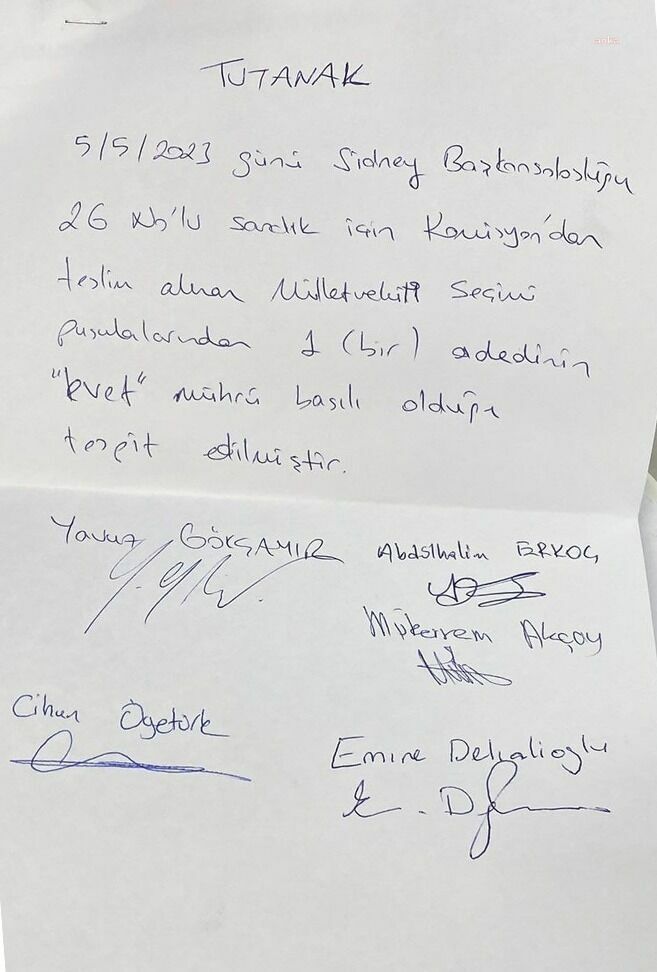 anka
TUTANAK
5/5/2023 günü Sidney Başkonsolosluğu
26 No'lu sandık için Komisyon'dan
teslim alınan Milletvekili Seçimi
pusulalarından 1 (bir) adedinin
"Evet" mührü basılı olduğu
tespit edilmiştir.
Yavuz GÖKÇAMIR
Abdulhalim ERKOÇ
Mükerrem Akçoy
Cihan Ögetürk
Emine Delialioglu
E. D